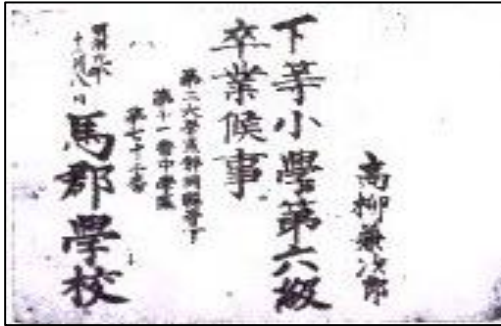 高柳兼次郎
下等小學第六級
卒業候事
第二大学區静岡縣管下
第十一番中学區
第七十三番
明治九年
十一月八日
馬郡學校